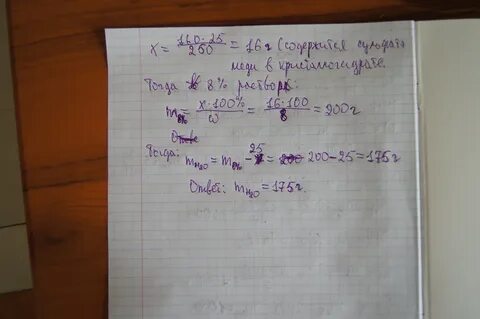 x = 160·25/250 = 16 г (содержится сульфата
меди в кристаллогидрате
Тогда в 8% растворе:
m8% = x·100%/ω = 16·100/8 = 200г
Тогда: mH2O = m8% - 25 = 200-25 = 175г
Ответ: mH2O = 175г.